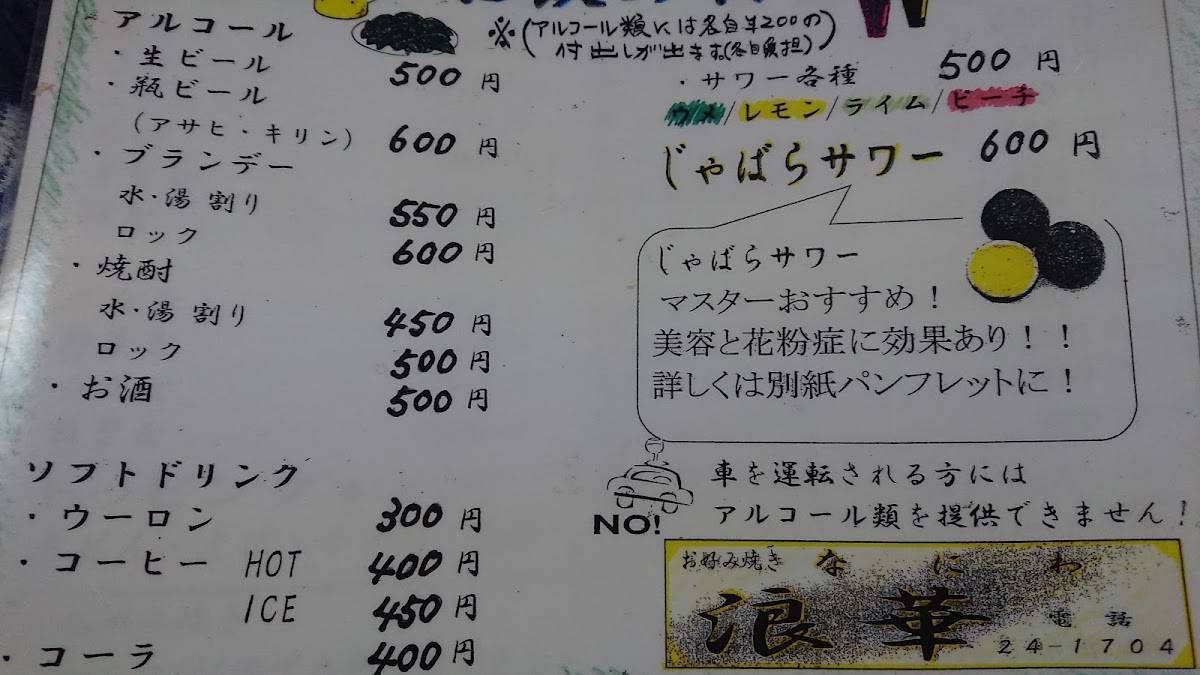 アルコール
・生ビール 500 円
・瓶ビール
（アサヒ・キリン） 600 円
・ブランデー
水・湯 割り 550 円
ロック 600 円
・焼酎
水・湯 割り 450 円
ロック 500 円
・お酒 500 円
ソフトドリンク
・ウーロン 300 円
・コーヒー HOT 400 円
ICE 450 円
・コーラ 400 円
※(アルコール類には各自¥200の
付出しが出ます。(各自負担))
・サワー各種 500 円
ウメ/レモン/ライム/ピーチ
じゃばらサワー 600 円
じゃばらサワー
マスターおすすめ！
美容と花粉症に効果あり！！
詳しくは別紙パンフレットに！
NO!
車を運転される方には
アルコール類を提供できません！
お好み焼き なにわ
浪華
電話
24-1704